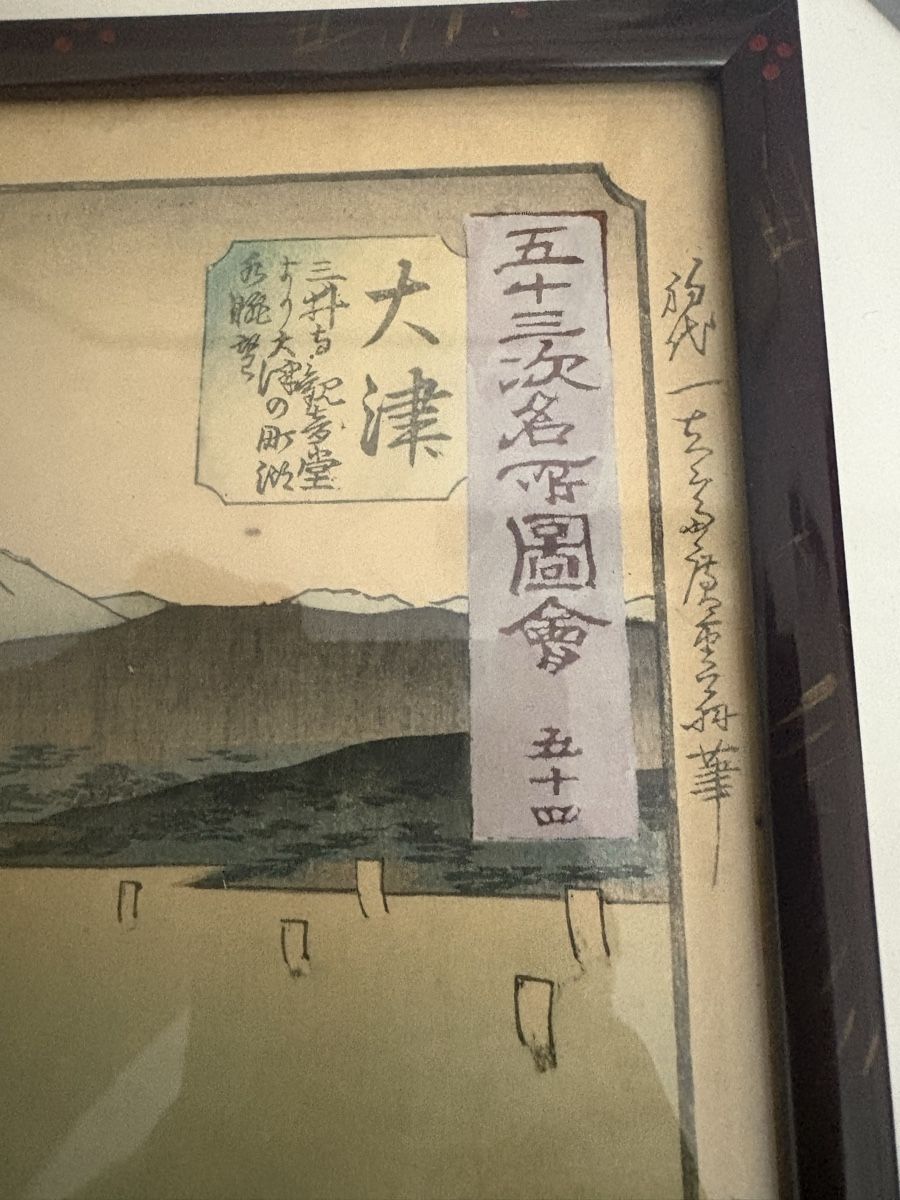 初代 一立斎廣重 筆
五十三次名所圖會 五十四
大津
三井寺観音堂
より大津の町湖
水眺望